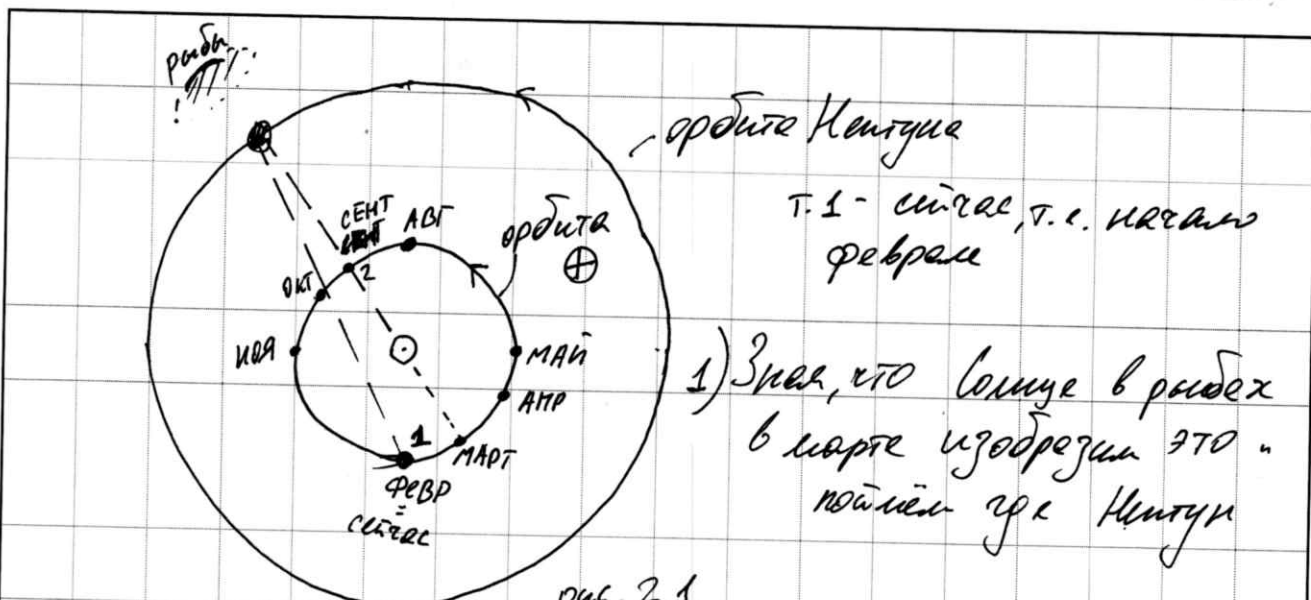 рыбы
орбита Нептуна
т.1 - сейчас, т.е. начало
феврале
СЕНТ
АВГ
орбита
2
ОКТ
НОЯ
МАЙ
АПР
1
МАРТ
ФЕВР
=
сейчас
1) Зная, что Солнце в рыбах
в марте изобразим это и
поймём где Нептун
рис. 2.1